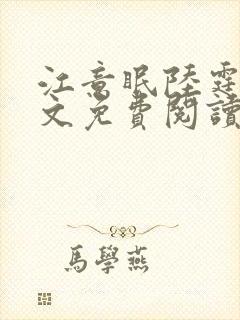 江意眠陸霆
文免費閱讀
馬學燕